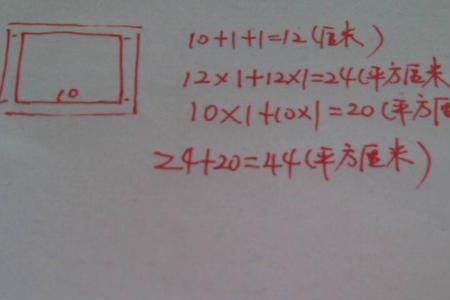 10+1+1=12(厘米)
12×1+12×1=24(平方厘米
10×1+10×1=20(平方厘
24+20=44(平方厘米)
10